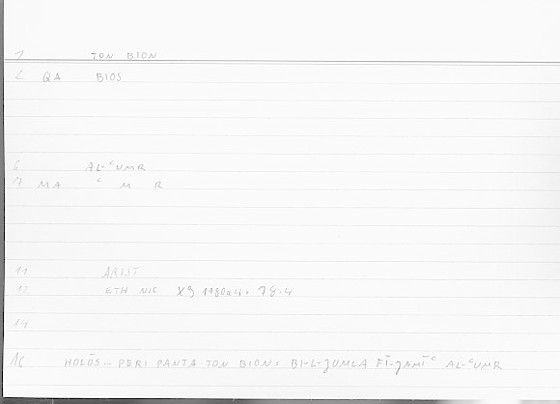 1 TON BION
2 QA BIOS
6 AL-ᶜUMR
7 MA ᶜ M R
11 ARIST
12 ETH NIC X9 1180a4=
14
16 HOLŌS – PERI PANTA TON BION= BI-L-JUMLA FĪ-JAMĪᶜ AL-ᶜUMR